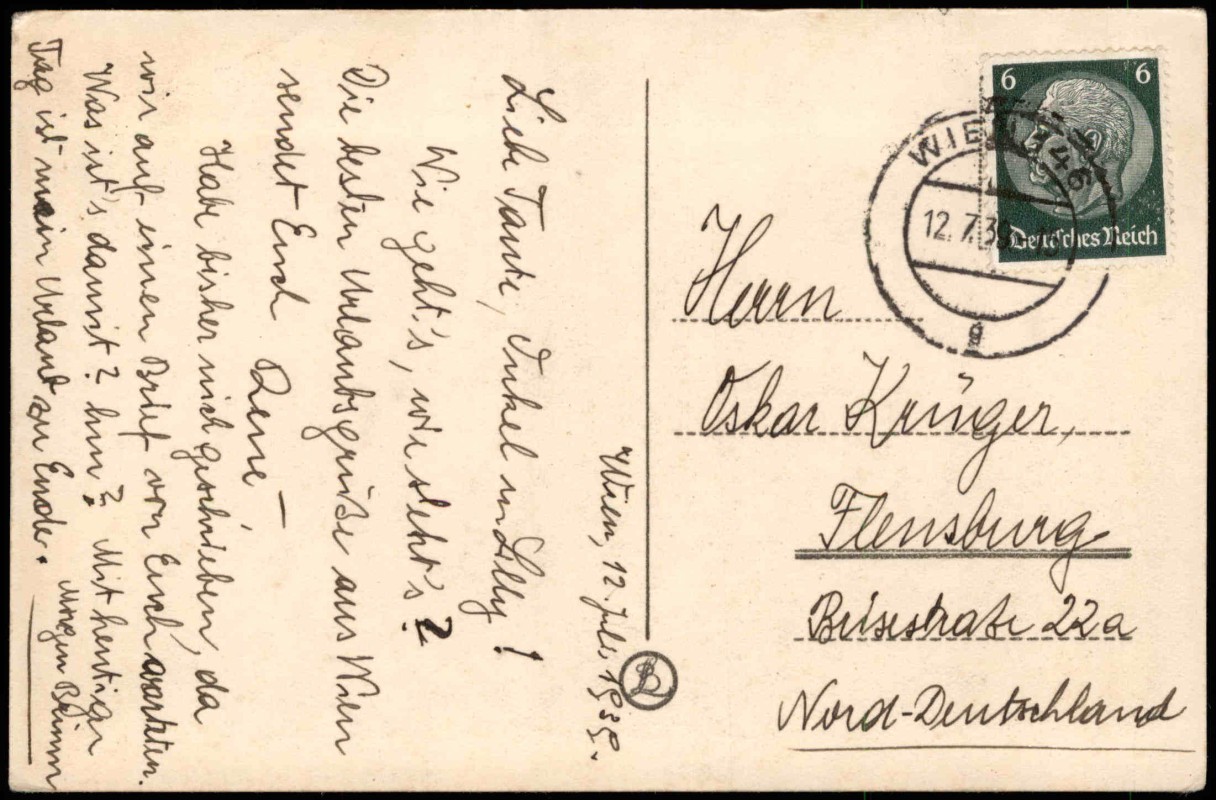 Wien, 12. Juli 1939.
Liebe Tante, Onkel u Lilly!
Wie geht's, wie steht's?
Die besten Urlaubsgrüße aus Wien
sendet Euch
Habe bisher nich geschrieben, da
wir auf einen Brief von Euch warteten.
Was ist's damit? hm? Mit heutigen
Tag ist mein Urlaub zu Ende. Morgen Beginn
6 6
Deutsches Reich
WIEN 146
12.7.39
a
Herrn
Oskar Krüger,
Flensburg
22a
Nord-Deutschland